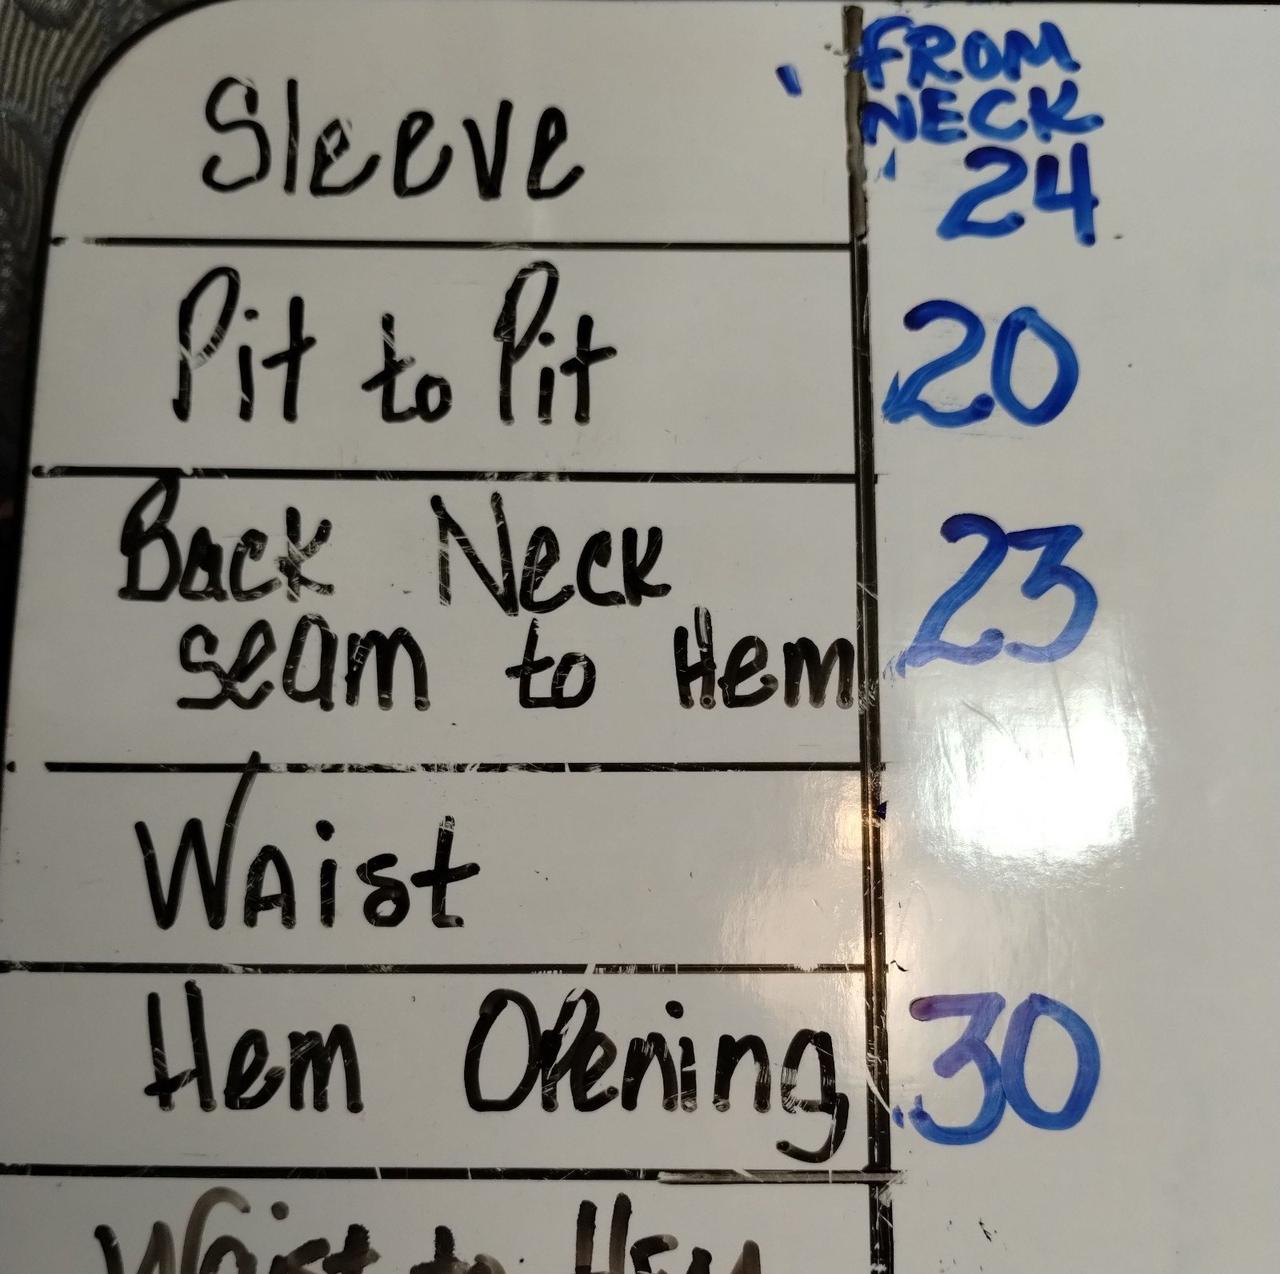 Sleeve
FROM
NECK
24
Pit to Pit
20
Back Neck
seam to Hem
23
Waist
Hem Opening
30
Waist to Hem